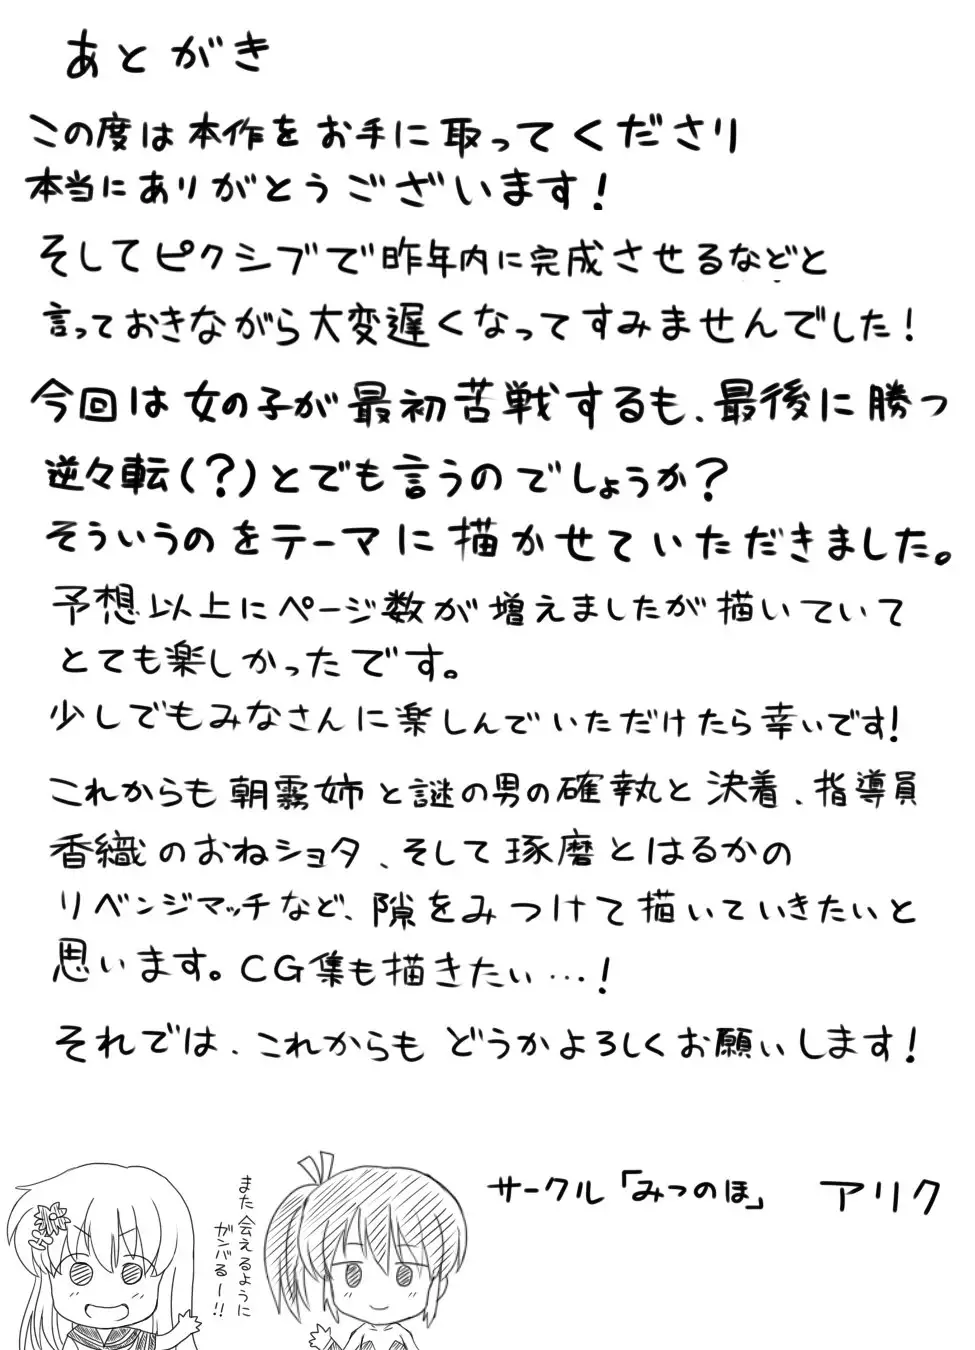 あとがき
この度は本作をお手に取ってくださり
本当にありがとうございます!
そしてピクシブで昨年内に完成させるなどと
言っておきながら大変遅くなってすみませんでした!
今回は女の子が最初苦戦するも、最後に勝つ
逆々転(?)とでも言うのでしょうか?
そういうのをテーマに描かせていただきました。
予想以上にページ数が増えましたが描いていて
とても楽しかったです。
少しでもみなさんに楽しんでいただけたら幸いです!
これからも朝霧姉と謎の男の確執と決着、指導員
香織のおねショタ、そして琢磨とはるかの
リベンジマッチなど、隙をみつけて描いていきたいと
思います。CG集も描きたい…!
それでは、これからもどうかよろしくお願いします!
サークル「みつのほ」 アリク
また会えるように
ガンバるー!!